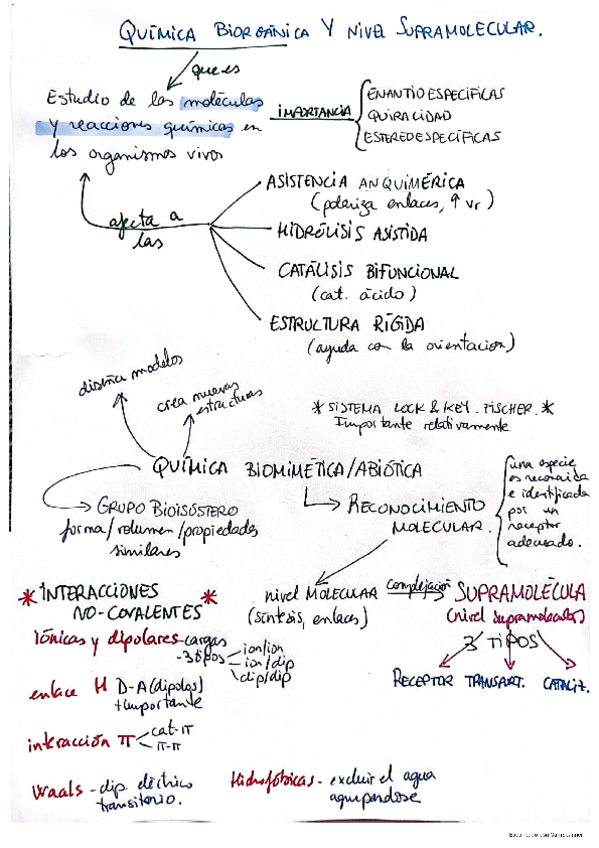 QUÍMICA BIORGÁNICA Y NIVEL SUPRAMOLECULAR.
que es
Estudio de las moléculas
y reacciones químicas en
los organismos vivos
IMPORTANCIA
ENANTIOESPECÍFICAS
QUIRALIDAD
ESTEREOESPECÍFICAS
afecta a
las
ASISTENCIA ANQUIMÉRICA
(polariza enlaces, ↑ vr)
HIDRÓLISIS ASISTIDA
CATÁLISIS BIFUNCIONAL
(cat. ácido)
ESTRUCTURA RÍGIDA
(ayuda con la orientacion)
diseña modelos
crea nuevas
estructuras
* SISTEMA LOCK & KEY. FISCHER. *
Importante relativamente
QUÍMICA BIOMIMÉTICA/ABIÓTICA
GRUPO BIOISÓSTERO
forma/volumen/propiedades
similares
RECONOCIMIENTO
MOLECULAR.
una especie
es reconocida
e identificada
por un
receptor
adecuado.
* INTERACCIONES *
NO-COVALENTES
iónicas y dipolares - cargas
- 3 tipos
ion/ion
ion/dip
dip/dip
enlace H D-A (dipolos)
+ importante
interacción π
cat-π
π-π
Waals - dip. eléctrico
transitorio.
Hidrofóbicas - excluir el agua
agrupandose
nivel MOLECULAR
(síntesis, enlaces)
complejación
SUPRAMOLÉCULA
(nivel supramolecular)
3 TIPOS
RECEPTOR TRANSPORT. CATALIZ.